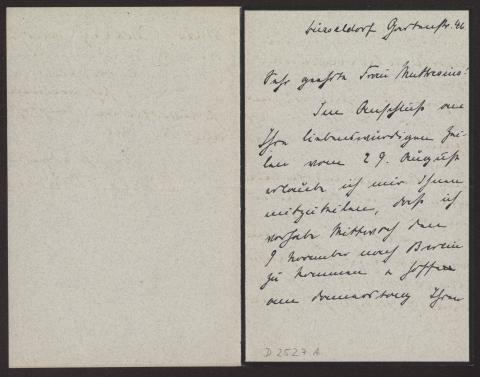 Düsseldorf Gartenstr. 46
Sehr geehrte Frau Muthesius!
Im Anschluß an
Ihre liebenswürdigen Zei-
len vom 29. August
erlaube ich mir Ihnen
mitzuteilen, daß ich
vorhabe Mittwoch den
9 November nach Berlin
zu kommen u hoffe
am Donnerstag Ihren
D 2527 A